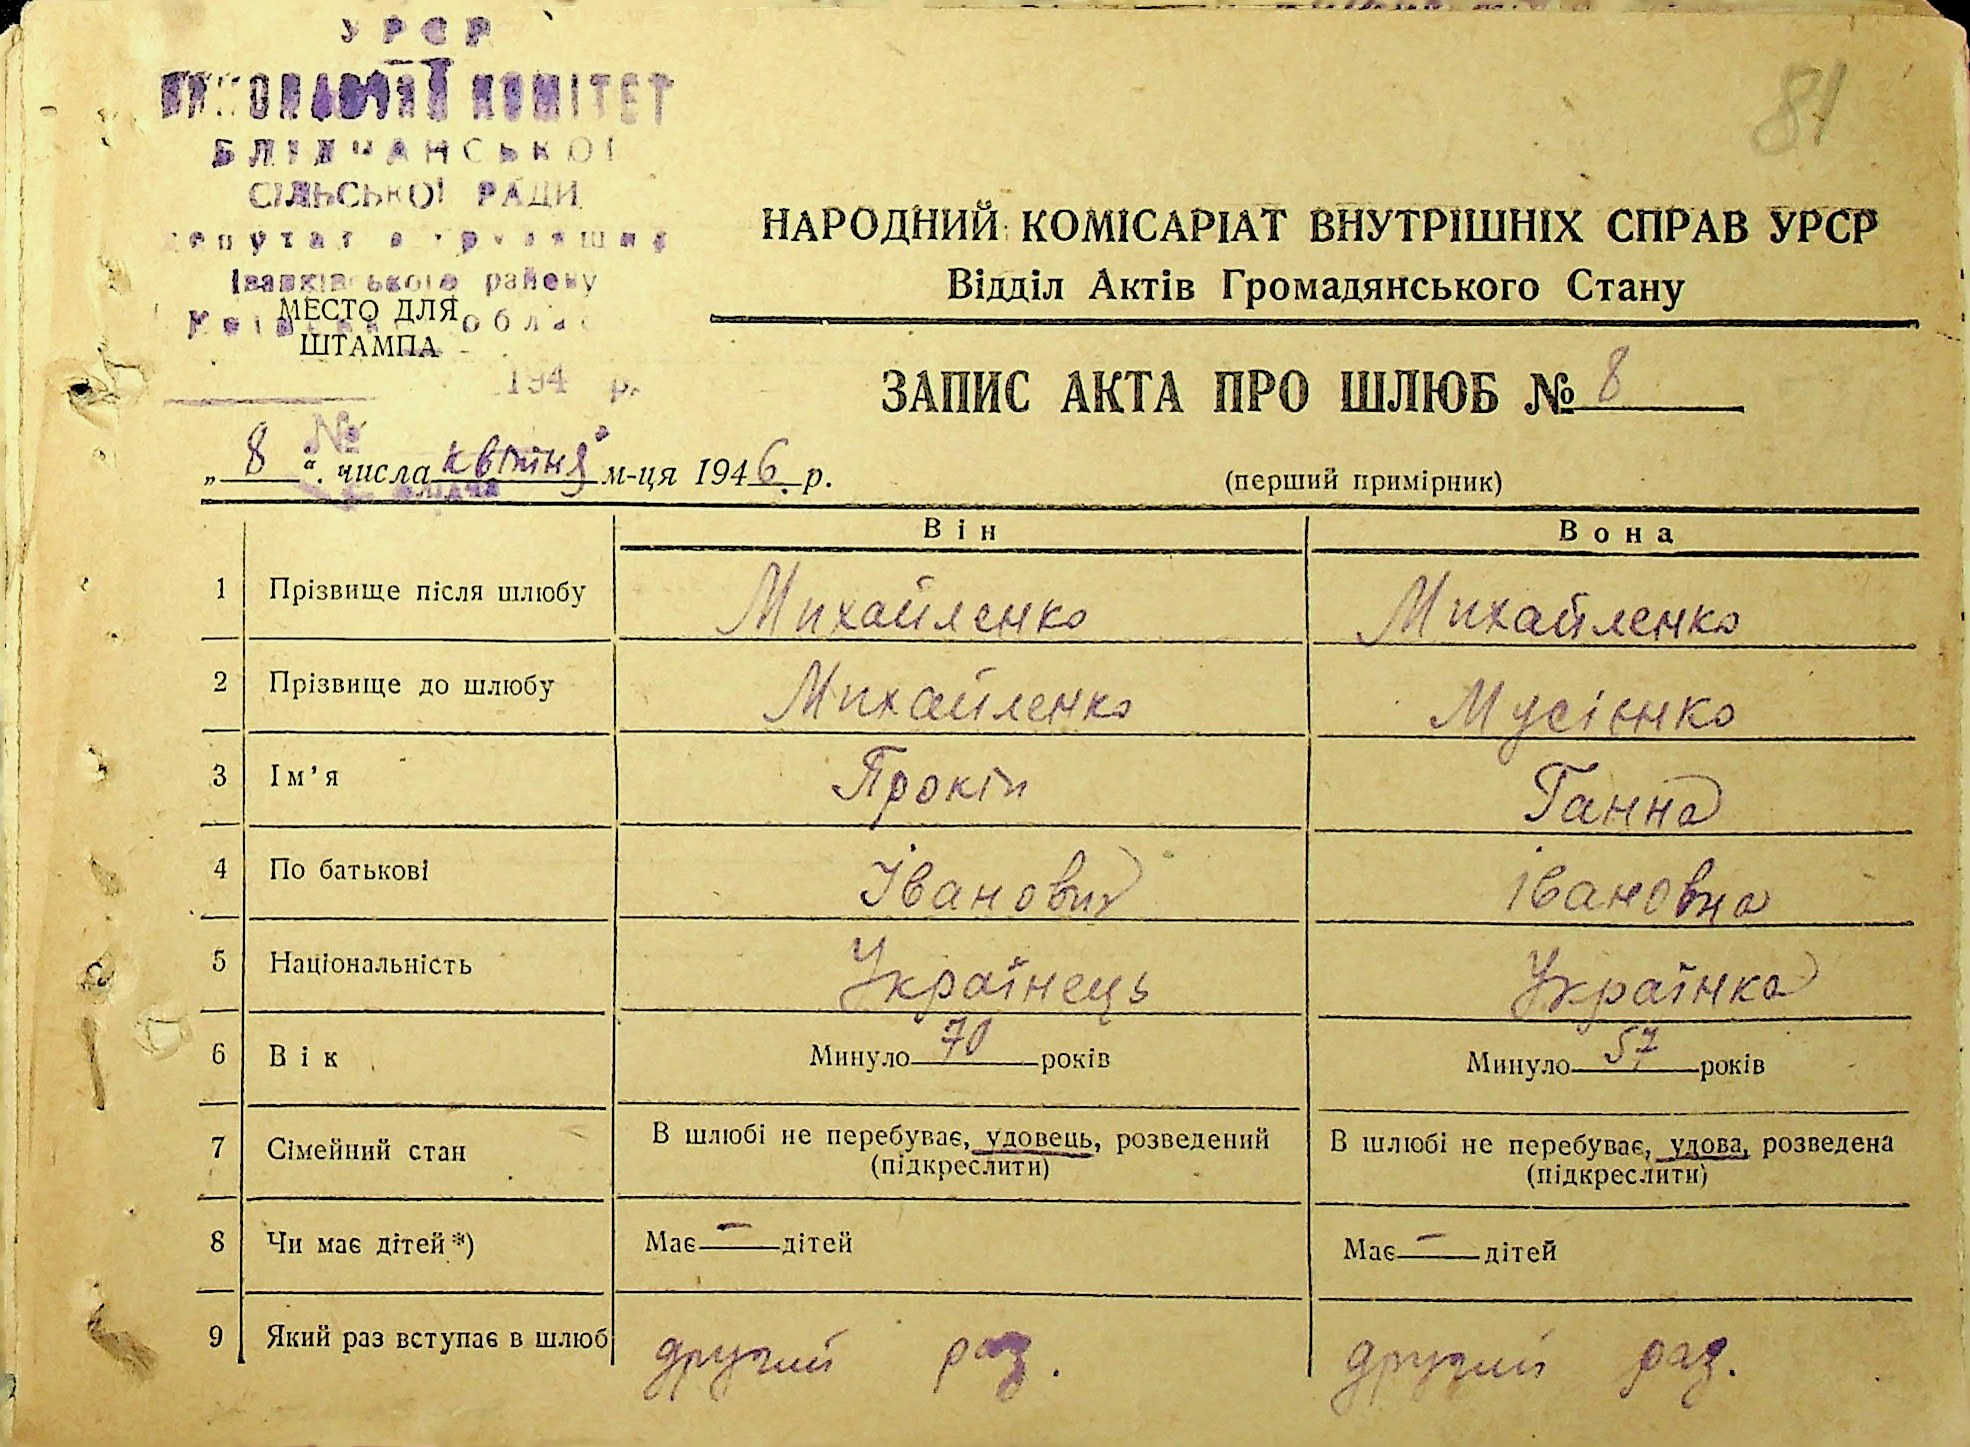 81
УРСР
ВИКОНАВЧИЙ КОМІТЕТ
БЛІДЧАНСЬКОЇ
СІЛЬСЬКОЇ РАДИ
депутатів трудящих
Іванківського району
МЕСТО ДЛЯ
ШТАМПА
194 р.
№
НАРОДНИЙ КОМІСАРІАТ ВНУТРІШНІХ СПРАВ УРСР
Відділ Актів Громадянського Стану
ЗАПИС АКТА ПРО ШЛЮБ № 8
„ 8 “ числа квітня м-ця 1946 р.
(перший примірник)
Він Вона
1 Прізвище після шлюбу Михайленко Михайленко
2 Прізвище до шлюбу Михайленко Мусієнко
3 Ім’я Прокіп Ганна
4 По батькові Іванович Івановна
5 Національність Українець Українка
6 Вік Минуло 70 років Минуло 57 років
7 Сімейний стан В шлюбі не перебуває, удовець, розведений В шлюбі не перебуває, удова, розведена
(підкреслити) (підкреслити)
8 Чи має дітей*) Має — дітей Має — дітей
9 Який раз вступає в шлюб другий раз. другий раз.